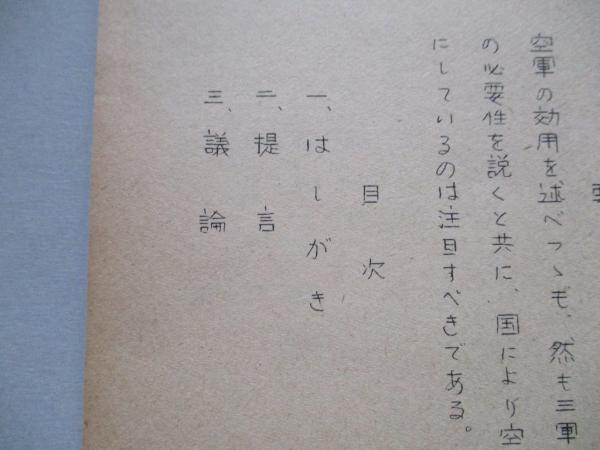 空軍の効用を述べつゝも、然も三軍
の必要性を説くと共に、国により空
にしているのは注目すべきである。
目次
一、はしがき
二、提言
三、議論